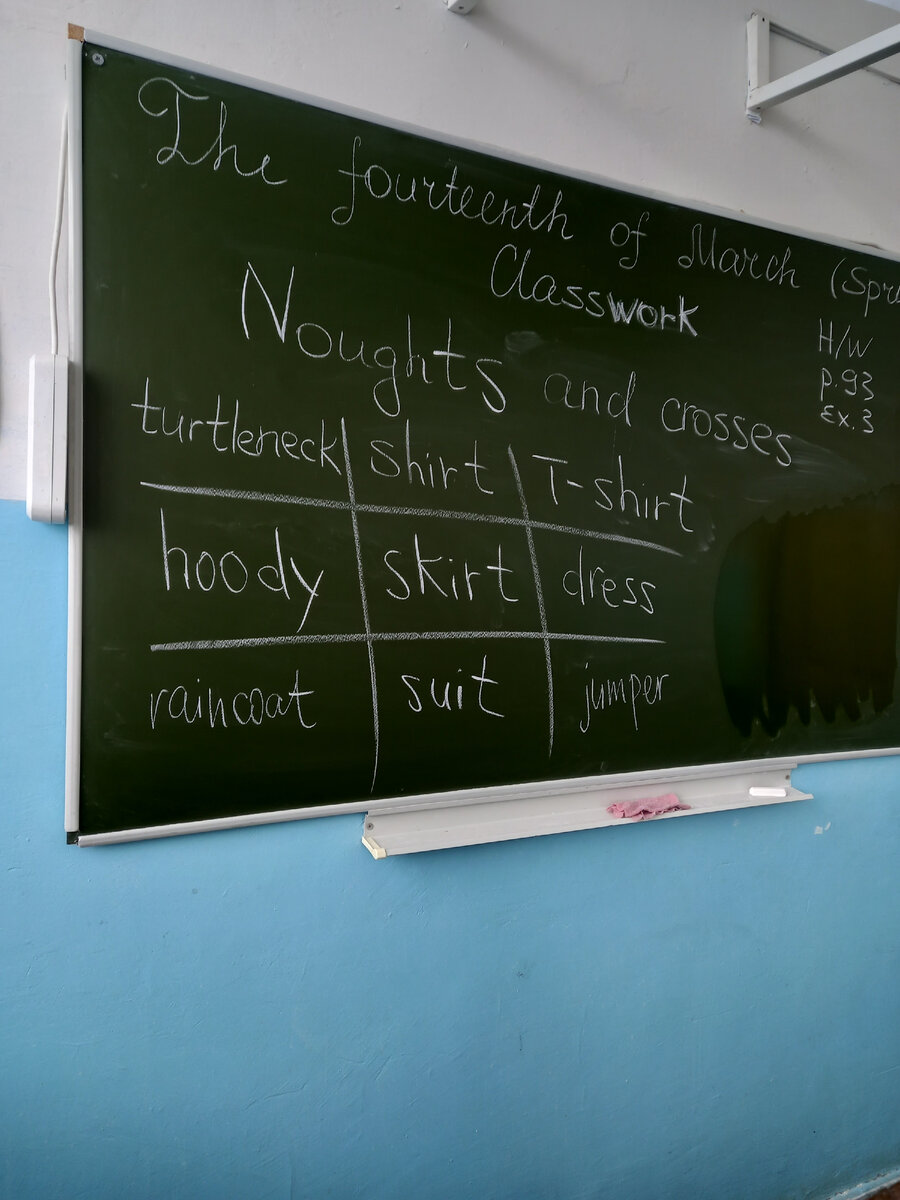 The fourteenth of March
Classwork
H/W
p. 93
Ex. 3
Noughts and crosses
turtleneck shirt T-shirt
hoody skirt dress
raincoat suit jumper